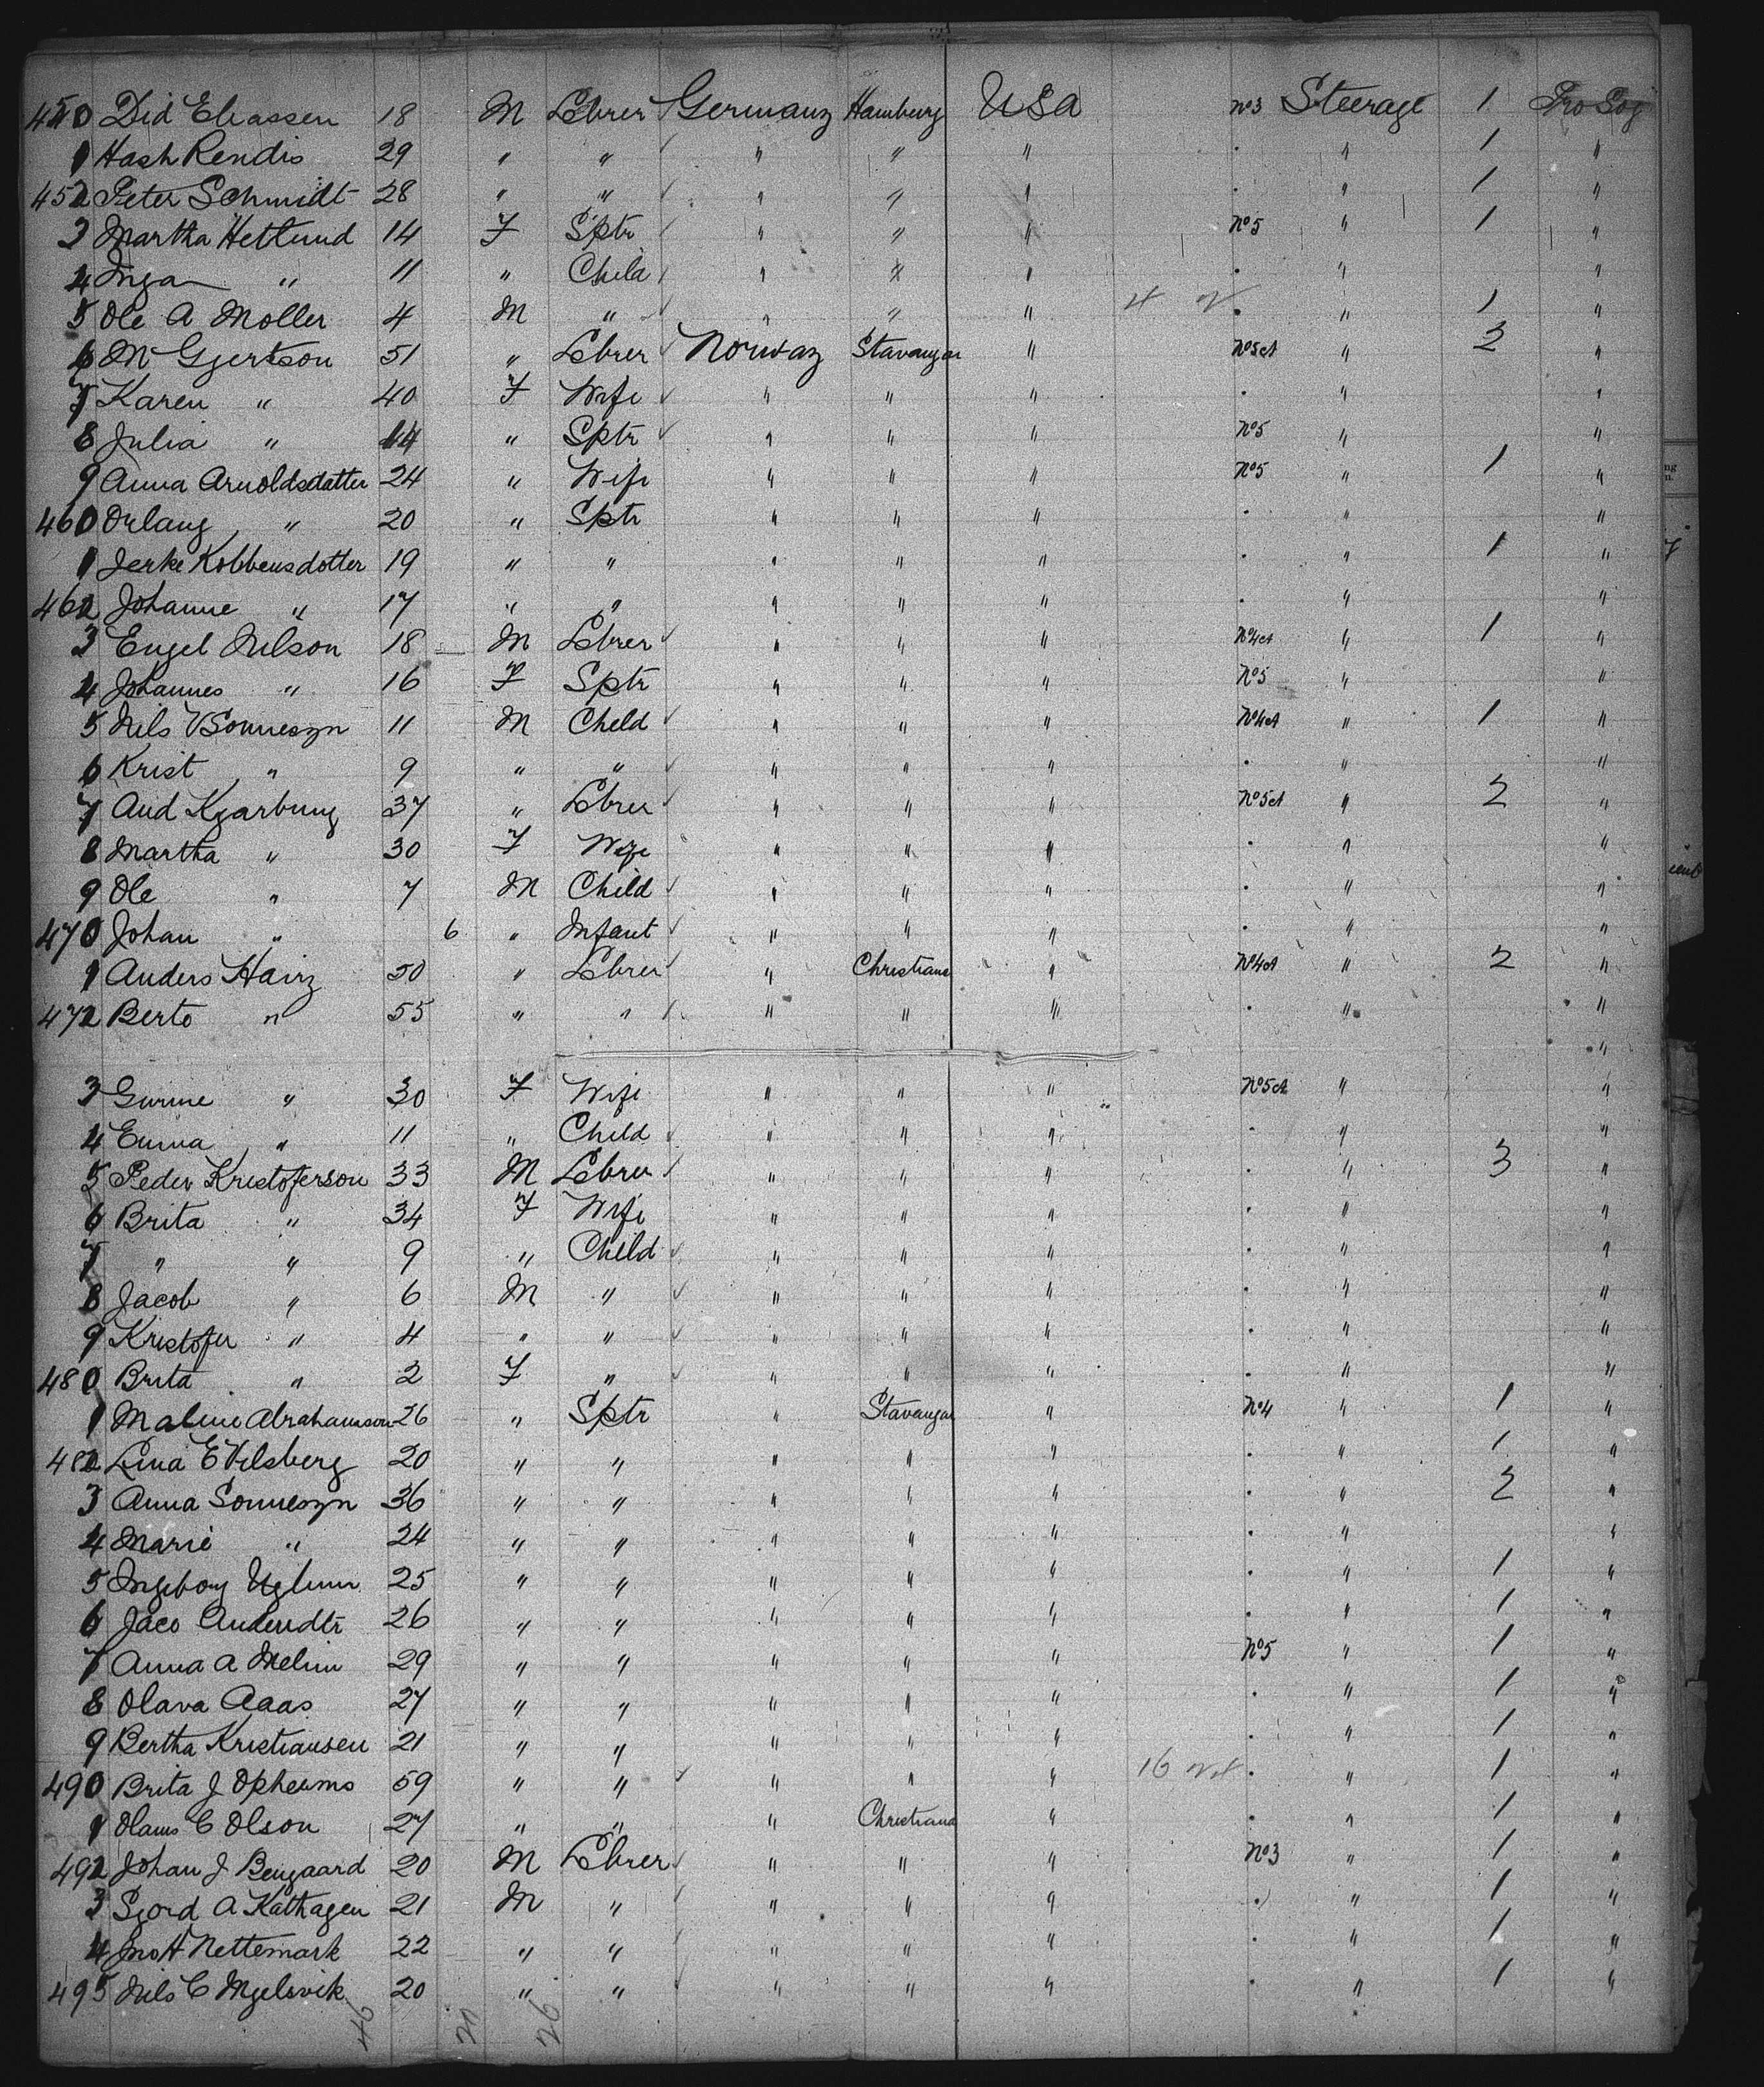 450 Did Eliassen 18 M Lebrer Germany Hamburg USA No3 Steerage 1 Pro Sog
1 Hash Rendis 29 " " " " " . " 1 "
452 Peter Schmidt 28 " " " " " . " 1 "
3 Martha Hetlund 14 F Sptr " " " No5 " 1 "
4 Inga " 11 " Child " " " . " "
5 Ole A Moller 4 M " " " " 4 . " 1 "
6 M Gjertson 51 " Lebrer Norway Stavanger " No5A " 2 "
7 Karen " 40 F Wife " " " . " "
8 Julia " 14 " Sptr " " " No5 " "
9 Anna Arnoldsdatter 24 " Wife " " " No5 " 1 "
460 Orlang " 20 " Sptr " " " . " "
1 Jerke Kobbensdotter 19 " " " " " . " 1 "
462 Johanne " 17 " " " " " . " "
3 Engel Nilson 18 M Lebrer " " " No4A " 1 "
4 Johannes " 16 F Sptr " " " No5 " "
5 Nils VSonneszn 11 M Child " " " No4A " 1 "
6 Krist " 9 " " " " " . " "
7 Aud Kjarbung 37 " Lebrer " " " No5A " 2 "
8 Martha " 30 F Wife " " " . " "
9 Ole " 7 M Child " " " . " "
470 Johan " 6 " Infant " " " . " "
1 Anders Hairz 50 " Lebrer " Christiana " No4A " 2 "
472 Berto " 55 " " " " " . " "
"
3 Gurine " 30 F Wife " " " No5A " "
4 Emma " 11 " Child " " " . " "
5 Peder Kristoferson 33 M Lebrer " " " . " 3 "
6 Brita " 34 F Wife " " " . " "
7 " " 9 " Child " " " . " "
8 Jacob " 6 M " " " " . " "
9 Kristofer " 4 " " " " " . " "
480 Brita " 2 F " " " " . " "
1 Maline Abrahamson 26 " Sptr " Stavanger " No4 " 1 "
482 Lina E Vilsberg 20 " " " " " . " 1 "
3 Anna Sonneszn 36 " " " " " . " 2 "
4 Marie " 24 " " " " " . " "
5 Ingeborg Uglum 25 " " " " " . " 1 "
6 Jaco Andersdtr 26 " " " " " . " 1 "
7 Anna A Melin 29 " " " " " No5 " 1 "
8 Olava Aaas 27 " " " " " . " 1 "
9 Bertha Kristiansen 21 " " " " " . " 1 "
490 Brita J Opheims 59 " " " " " 16 . " 1 "
1 Olaus C Olson 27 " " " Christiana " . " 1 "
492 Johan J Bengaard 20 M Lebrer " " " No3 " 1 "
3 Sjord A Kathagen 21 M " " " " . " 1 "
4 Jno H Nettemark 22 " " " " " . " 1 "
495 Nils C Mjelsvik 20 " " " " " . " 1 "
46 21 26